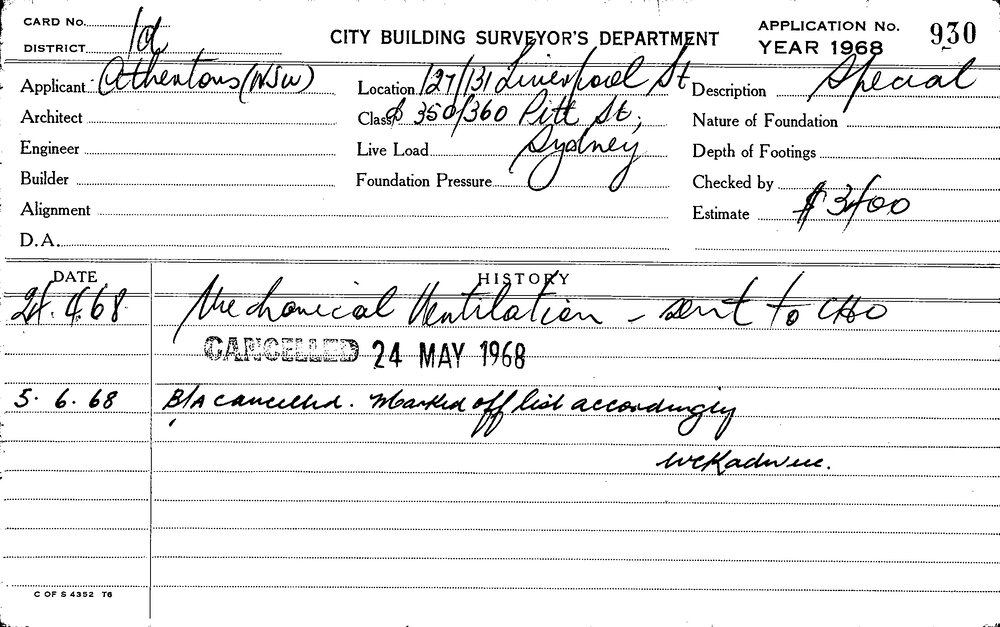 CARD No.
DISTRICT 1a
CITY BUILDING SURVEYOR'S DEPARTMENT
APPLICATION No. 930
YEAR 1968
Applicant Athentons (NSW)
Location 127/131 Liverpool St
Description Special
Architect
Class & 350/360 Pitt St,
Nature of Foundation
Engineer
Live Load Sydney
Depth of Footings
Builder
Foundation Pressure
Checked by
Alignment
Estimate $3400
D.A.
DATE
HISTORY
24.4.68 Mechanical Ventilation – sent to CHO
CANCELLED 24 MAY 1968
5.6.68 B/A cancelled. Marked off list accordingly
C OF S 4352 T6